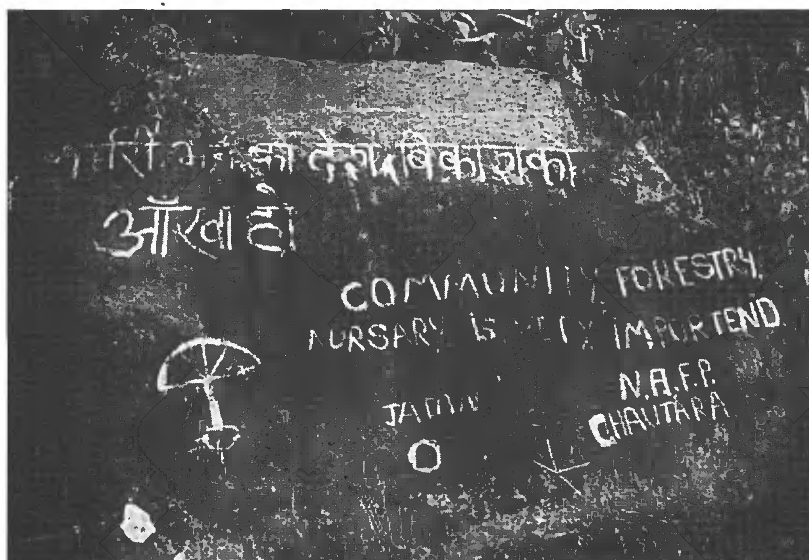 को देश बिकाशको
आँखा हो
COMMUNITY FORESTRY.
NURSARY is VERY IMPORTEND
N.A.F.P.
CHAUTARA